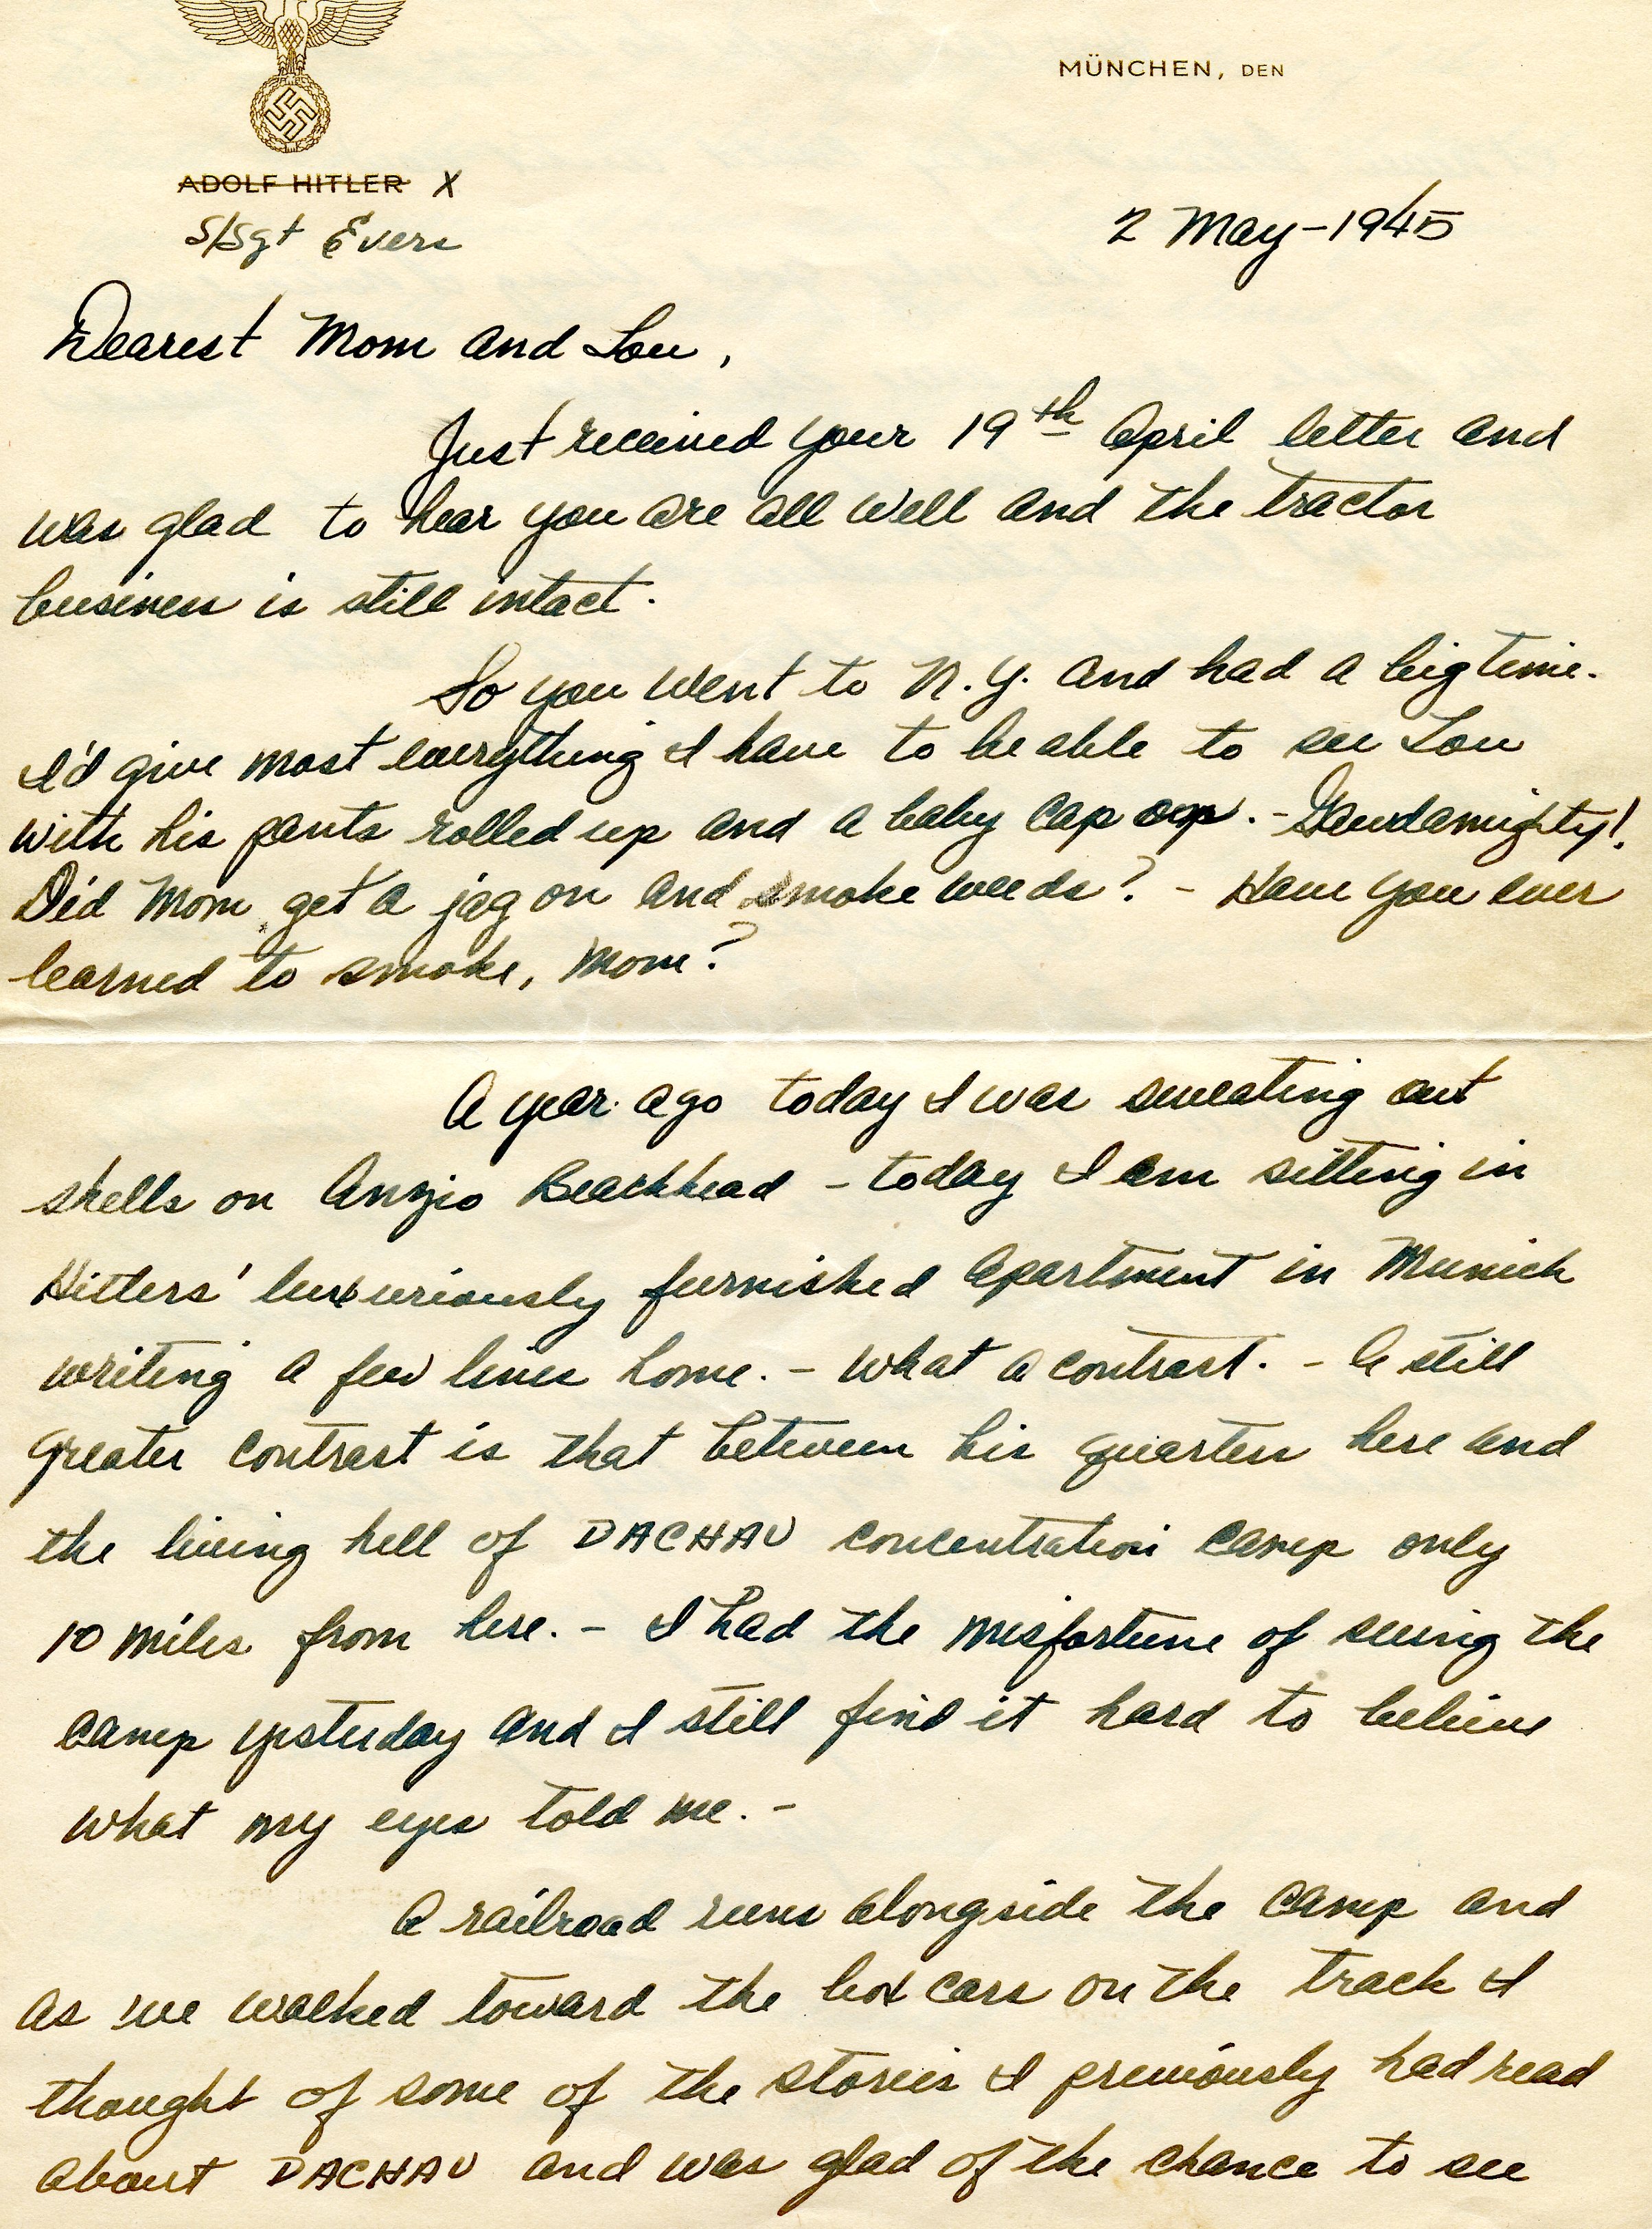 MÜNCHEN, DEN
ADOLF HITLER X
S/Sgt Evers
2 May-1945
Dearest Mom and Lou,
Just received your 19th April letter and
was glad to hear you are all well and the tractor
business is still intact.
So you went to N.Y. and had a big time.
I'd give most everything I have to be able to see Lou
with his pants rolled up and a baby cap on. - Gawdamighty!
Did Mom get a jag on and smoke weeds? - Have you ever
learned to smoke, Mom?
A year ago today I was sweating out
shells on Anzio Beachhead - today I am sitting in
Hitlers' luxuriously furnished apartment in Munich
writing a few lines home. - What a contrast. - A still
greater contrast is that between his quarters here and
the living hell of DACHAU concentration camp only
10 miles from here. - I had the misfortune of seeing the
camp yesterday and I still find it hard to believe
what my eyes told me. -
A railroad runs alongside the camp and
as we walked toward the box cars on the track I
thought of some of the stories I previously had read
about DACHAU and was glad of the chance to see